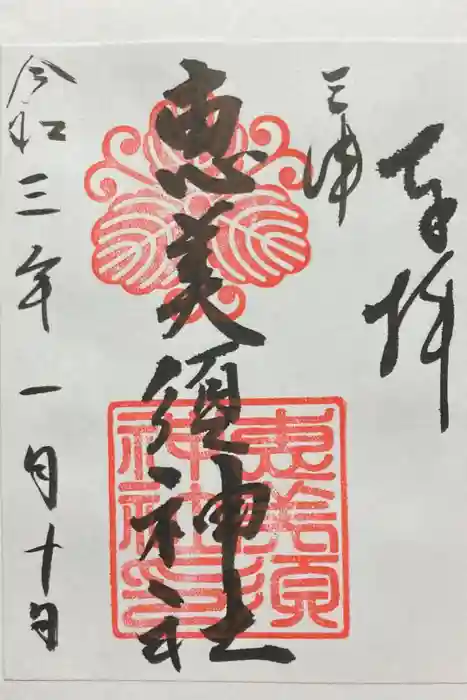 奉拝
三津
恵美須神社
神社印
令和三年一月十日